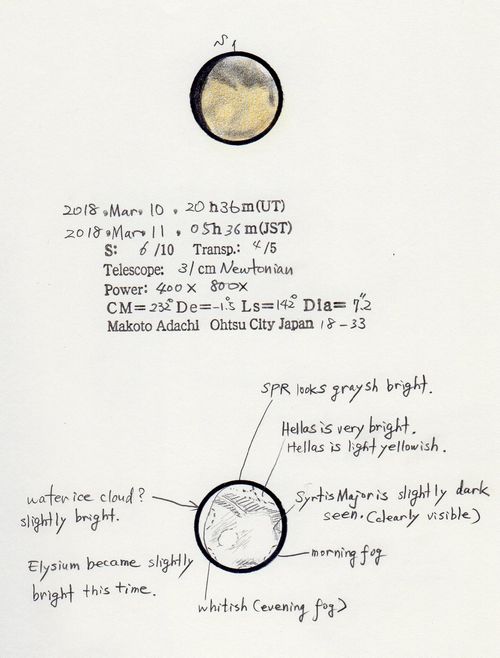 S
2018. Mar. 10. 20h36m(UT)
2018. Mar. 11. 05h36m(JST)
S: 6/10 Transp.: 4/5
Telescope: 31cm Newtonian
Power: 400x 800x
CM=232° De=-1.°5 Ls=142° Dia= 7."2
Makoto Adachi Ohtsu City Japan 18-33
SPR looks graysh bright.
Hellas is very bright.
Hellas is light yellowish.
water ice cloud?
slightly bright.
Syrtis Major is slightly dark
seen. (clearly visible)
Elysium became slightly
bright this time.
morning fog
whitish (evening fog)